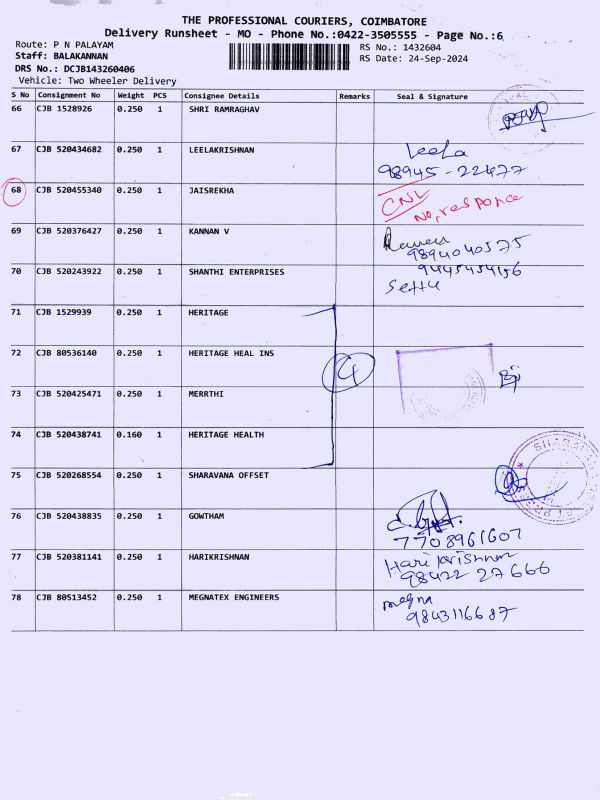 THE PROFESSIONAL COURIERS, COIMBATORE
Delivery Runsheet - MO - Phone No.:0422-3505555 - Page No.:6
Route: P N PALAYAM
RS No.: 1432604
Staff: BALAKANNAN
RS Date: 24-Sep-2024
DRS No.: DCJB143260406
Vehicle: Two Wheeler Delivery
S No Consignment No Weight PCS Consignee Details Remarks Seal & Signature
66 CJB 1528926 0.250 1 SHRI RAMRAGHAV
67 CJB 520434682 0.250 1 LEELAKRISHNAN Leela
98945-22477
68 CJB 520455340 0.250 1 JAISREKHA CNL
No, responce
69 CJB 520376427 0.250 1 KANNAN V
9894040575
70 CJB 520243922 0.250 1 SHANTHI ENTERPRISES 9445454156
Settu
71 CJB 1529939 0.250 1 HERITAGE
72 CJB 80536140 0.250 1 HERITAGE HEAL INS 4
73 CJB 520425471 0.250 1 MERRTHI
74 CJB 520438741 0.160 1 HERITAGE HEALTH
75 CJB 520268554 0.250 1 SHARAVANA OFFSET
76 CJB 520438835 0.250 1 GOWTHAM
7708961607
77 CJB 520381141 0.250 1 HARIKRISHNAN Hari krishnan
98422 27666
78 CJB 80513452 0.250 1 MEGNATEX ENGINEERS megna
9843116687